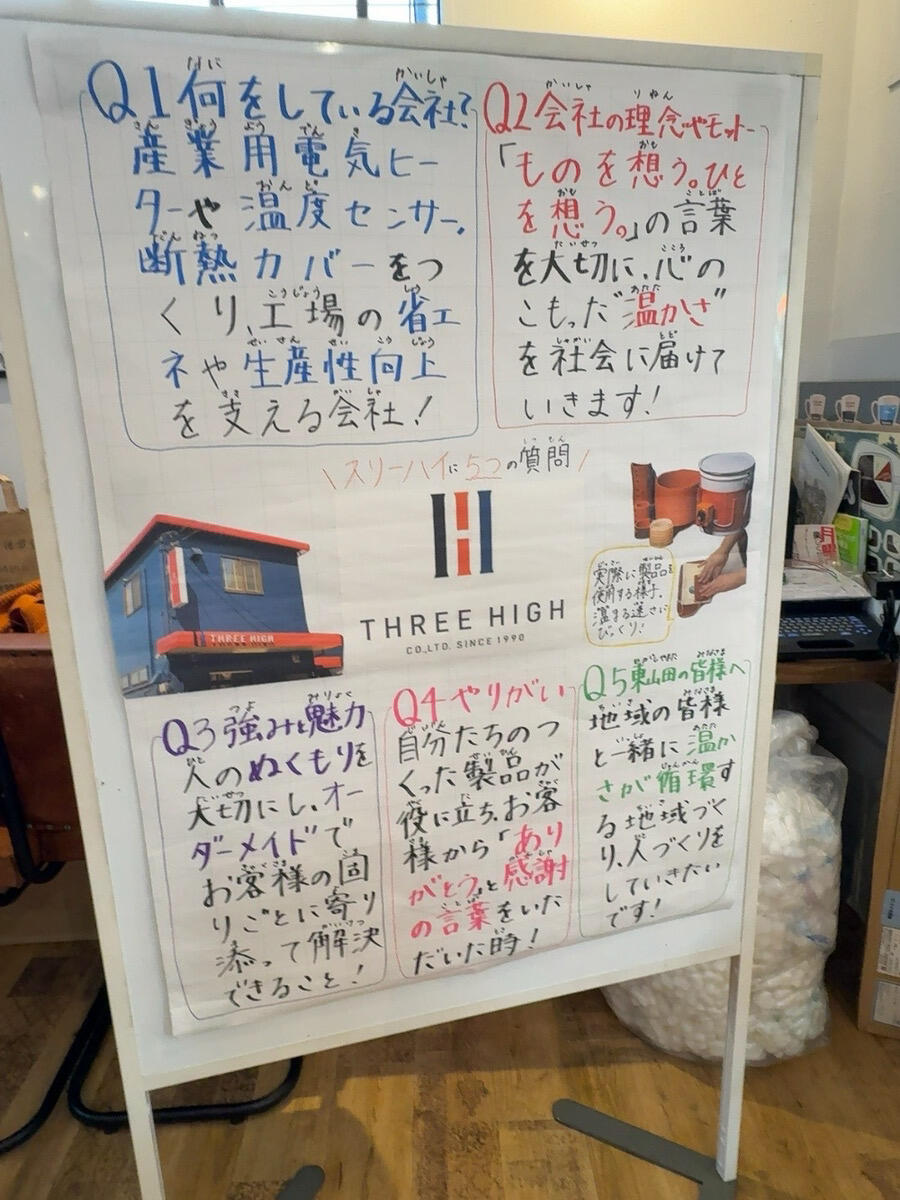 Q1何をしている会社?
産業用電気ヒー
ターや温度センサー、
断熱カバーをつ
くり、工場の省エ
ネや生産性向上
を支える会社!
Q2会社の理念やモットー
「ものを想う。ひと
を想う。」の言葉
を大切に、心の
こもった"温かさ"
を社会に届けて
いきます!
\スリーハイに5つの質問/
THREE HIGH
THREE HIGH
CO.,LTD. SINCE 1990
実際に製品を
使用する様子。
温まる速さに
びっくり!
Q3強みと魅力
人のぬくもりを
大切にし、オー
ダーメイドで
お客様の困
りごとに寄り
添って解決
できること!
Q4やりがい
自分たちのつ
くった製品が
役に立ち、お客
様から「あり
がとう」と感謝
の言葉をいた
だいた時!
Q5東山田の皆様へ
地域の皆様
と一緒に温か
さが循環す
る地域づく
り、人づくりを
していきたい
です!